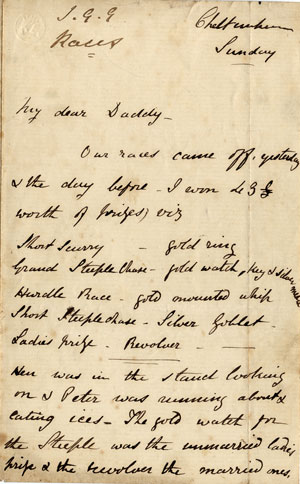 J. G. G
Races
Cheltenham
Sunday
My dear Daddy -
Our races came off, yesterday
& the day before - I won 43£
worth of prizes, viz
Short Scurry - gold ring
Grand Steeple Chase - gold watch, key &
Hurdle Race - gold mounted whip
Short Steeplechase - Silver Goblet -
Ladies prize - Revolver -
was in the stand looking
on & Peter was running about &
eating ices - The gold watch for
the Steeple was the unmarried ladies
prize & the revolver the married ones.